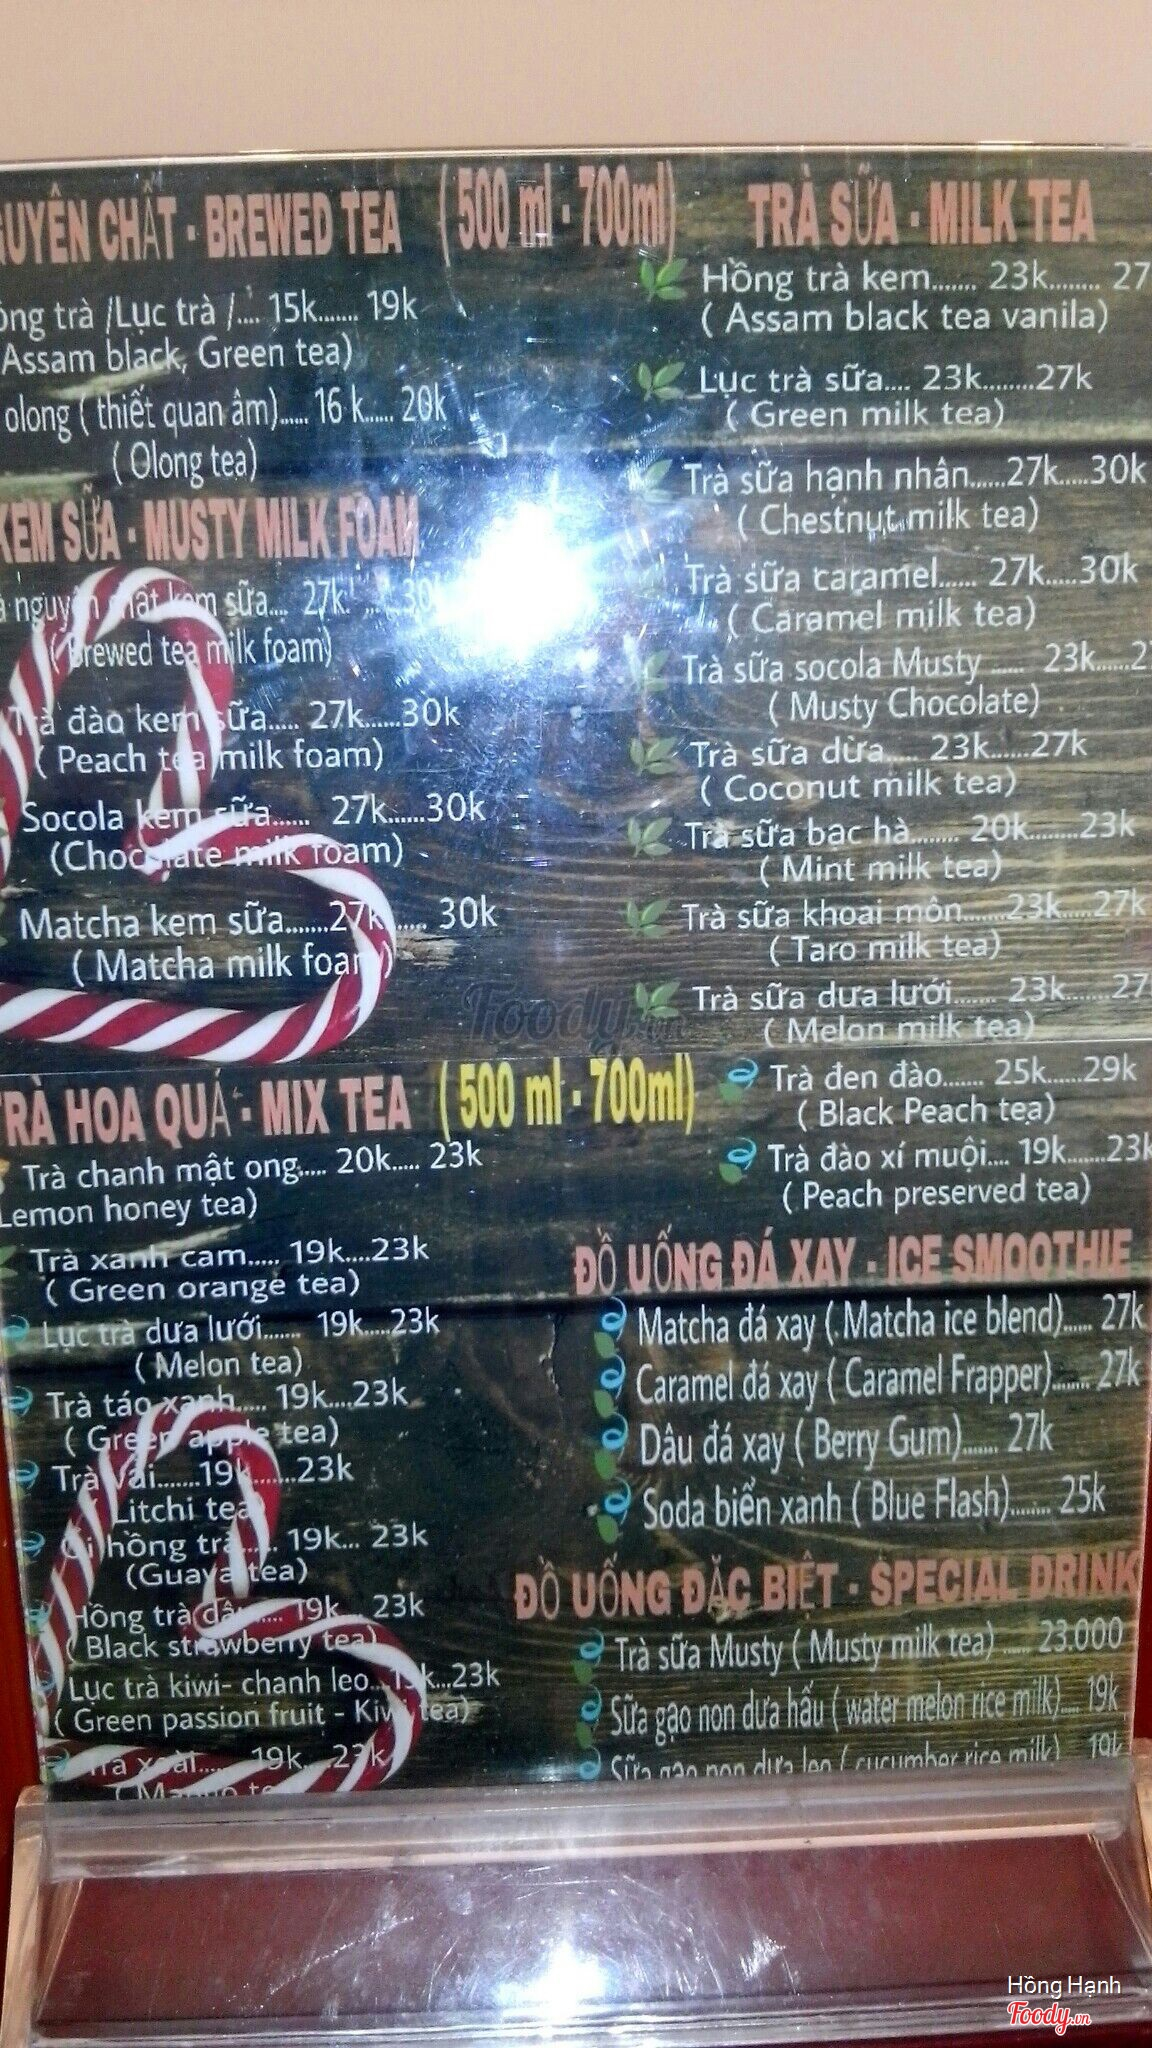 CHẤT - BREWED TEA ( 500 ml - 700ml)
trà /Lục trà /.... 15k....... 19k
Assam black, Green tea)
olong ( thiết quan âm)...... 16 k...... 20k
( Olong tea)
KEM SỮA - MUSTY MILK FOAM
nguyên chất kem sữa.... 27k. ... 30k
( Brewed tea milk foam)
Trà đào kem sữa..... 27k......30k
( Peach tea milk foam)
Socola kem sữa...... 27k......30k
(Chocolate milk foam)
Matcha kem sữa.......27k...... 30k
( Matcha milk foam)
TRÀ SỮA - MILK TEA
Hồng trà kem....... 23k........ 27
( Assam black tea vanila)
Lục trà sữa.... 23k........27k
( Green milk tea)
Trà sữa hạnh nhân......27k.....30k
( Chestnut milk tea)
Trà sữa caramel...... 27k.....30k
( Caramel milk tea)
Trà sữa socola Musty ...... 23k......2
( Musty Chocolate)
Trà sữa dừa..... 23k......27k
( Coconut milk tea)
Trà sữa bạc hà........ 20k........23k
( Mint milk tea)
Trà sữa khoai môn.......23k.....27k
( Taro milk tea)
Trà sữa dưa lưới....... 23k.......27
( Melon milk tea)
Foody.vn
TRÀ HOA QUẢ - MIX TEA ( 500 ml - 700ml)
Trà chanh mật ong..... 20k..... 23k
Lemon honey tea)
Trà xanh cam..... 19k....23k
( Green orange tea)
Lục trà dưa lưới....... 19k.....23k
( Melon tea)
Trà táo xanh..... 19k....23k
( Green apple tea)
Trà vải.......19k.......23k
( Litchi tea)
Ổi hồng trà.... 19k... 23k
(Guava tea)
Hồng trà dâu..... 19k... 23k
( Black strawberry tea)
Lục trà kiwi- chanh leo...19k...23k
( Green passion fruit - Kiwi tea)
Trà xoài...... 19k....23k
( Mango tea
Trà đen đào....... 25k......29k
( Black Peach tea)
Trà đào xí muội.... 19k.......23k
( Peach preserved tea)
ĐỒ UỐNG ĐÁ XAY - ICE SMOOTHIE
Matcha đá xay ( Matcha ice blend)...... 27k
Caramel đá xay ( Caramel Frapper)....... 27k
Dâu đá xay ( Berry Gum)....... 27k
Soda biển xanh ( Blue Flash)........ 25k
ĐỒ UỐNG ĐẶC BIỆT - SPECIAL DRINK
Trà sữa Musty ( Musty milk tea) ...... 23.000
Sữa gạo non dưa hấu ( water melon rice milk).... 19k
Sữa gạo non dưa leo ( cucumber rice milk) 19k
Hồng Hạnh
Foody.vn